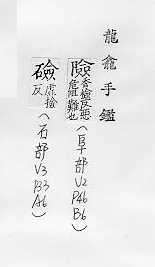 龍龕手鑑
險香檢反惡危阻難也(阜部V2P46B6)
礆虛撿反(石部V3P33A6)